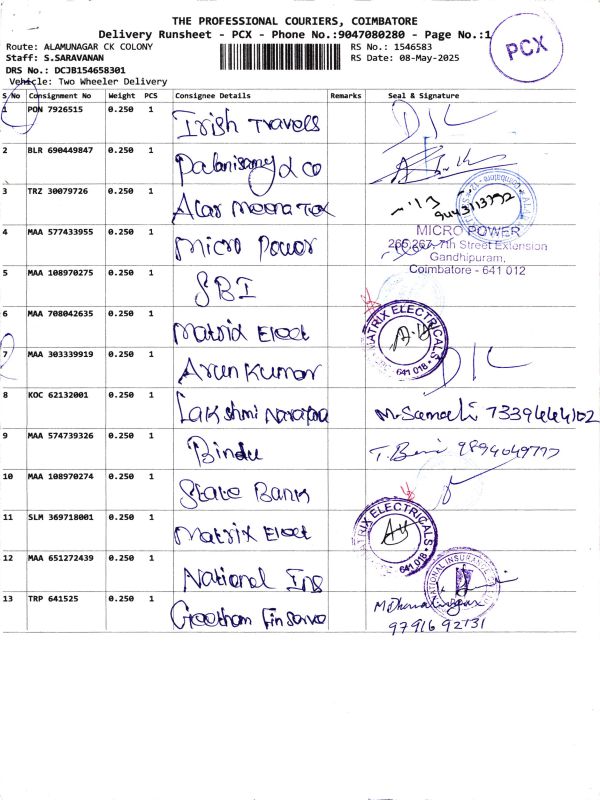 THE PROFESSIONAL COURIERS, COIMBATORE
Delivery Runsheet - PCX - Phone No.:9047080280 - Page No.:1
PCX
Route: ALAMUNAGAR CK COLONY
RS No.: 1546583
Staff: S.SARAVANAN
RS Date: 08-May-2025
DRS No.: DCJB154658301
Vehicle: Two Wheeler Delivery
S/No Consignment No Weight PCS Consignee Details Remarks Seal & Signature
1 PON 7926515 0.250 1 Irish Travels D/L
2 BLR 690449847 0.250 1 Palanisamy & Co
3 TRZ 30079726 0.250 1 9443113792
4 MAA 577433955 0.250 1 Micro Power
MICRO POWER
266,267, 7th Street Extension
Gandhipuram,
Coimbatore - 641 012
5 MAA 108970275 0.250 1 SBI
6 MAA 708042635 0.250 1 Matrix Elect
MATRIX ELECTRICALS
641 018
7 MAA 303339919 0.250 1 Arun Kumar D/L
8 KOC 62132001 0.250 1 Lakshmi
9 MAA 574739326 0.250 1 Bindu
10 MAA 108970274 0.250 1 State Bank
11 SLM 369718001 0.250 1 Matrix Elect
MATRIX ELECTRICALS
641 018
12 MAA 651272439 0.250 1 National Ins
NATIONAL INSURANCE
13 TRP 641525 0.250 1
97916 92131